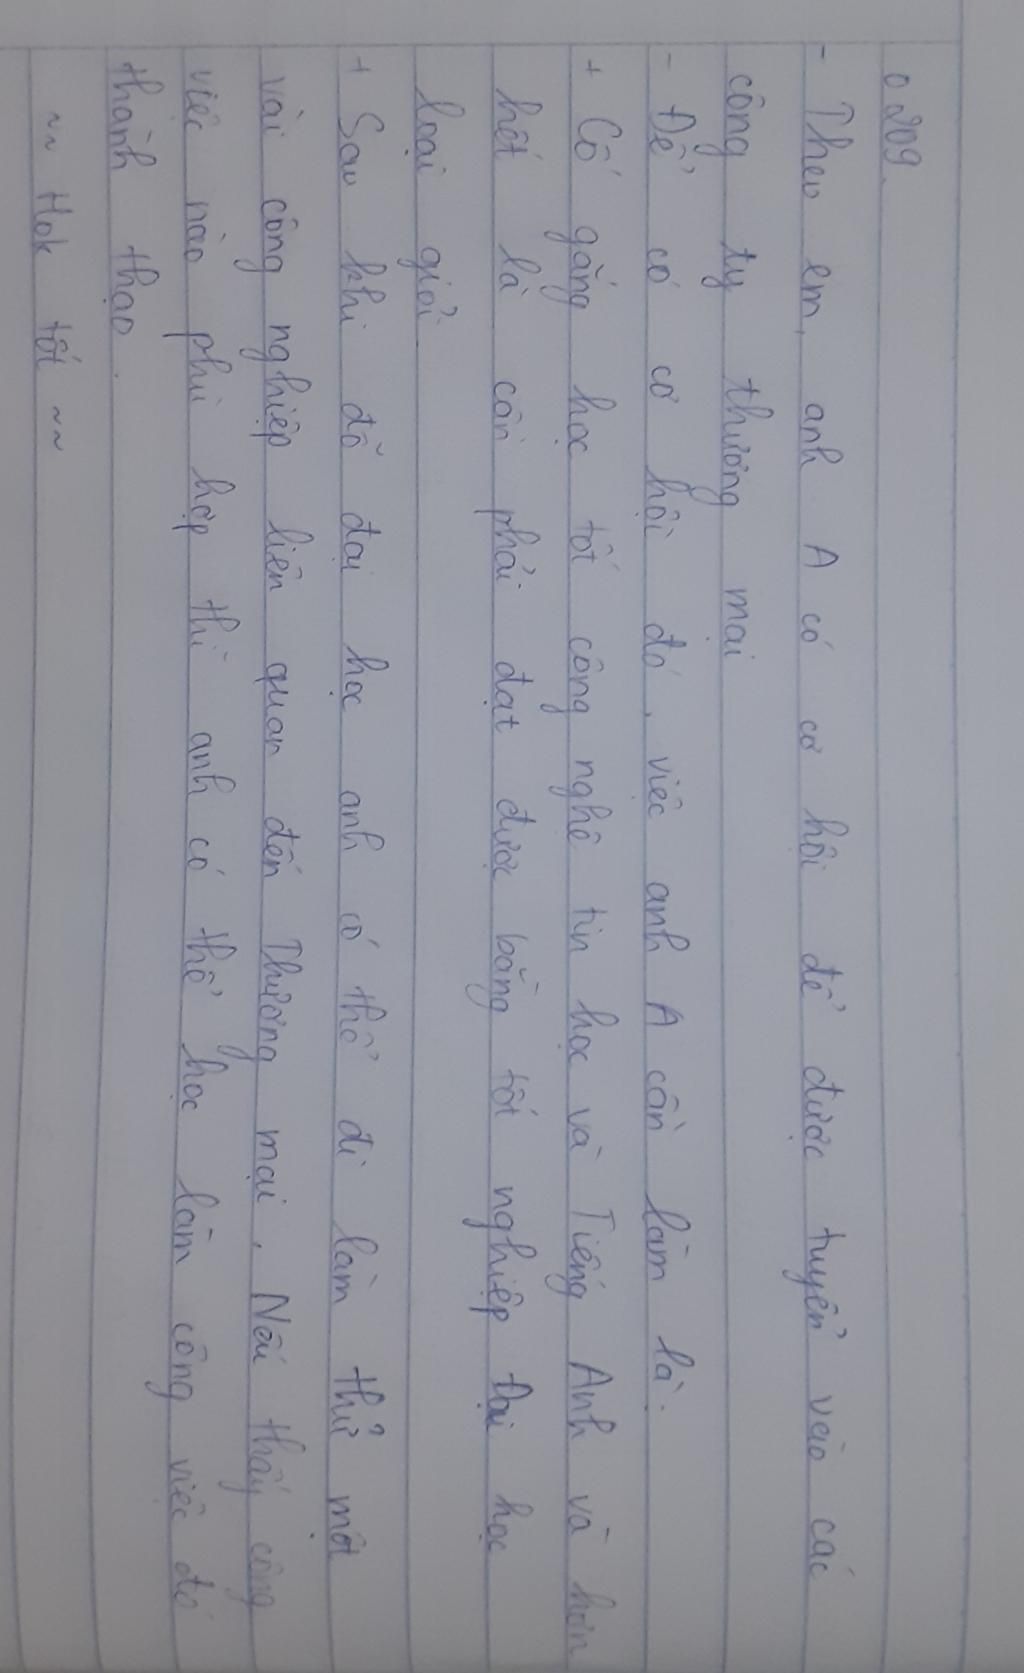 0209.
- Theo em, anh A có cơ hội để được tuyển vào các
công ty thương mại
- Để có cơ hội đó, việc anh A cần làm là:
+ Cố gắng học tốt công nghệ tin học và Tiếng Anh và hơn
hết là cần phải đạt được bằng tốt nghiệp Đại học
loại giỏi
+ Sau khi đỗ đại học anh có thể đi làm thử một
vài công nghiệp liên quan đến Thương mại. Nếu thấy công
việc nào phù hợp thì anh có thể học làm công việc đó
thành thạo.
~~ Hok tốt ~~